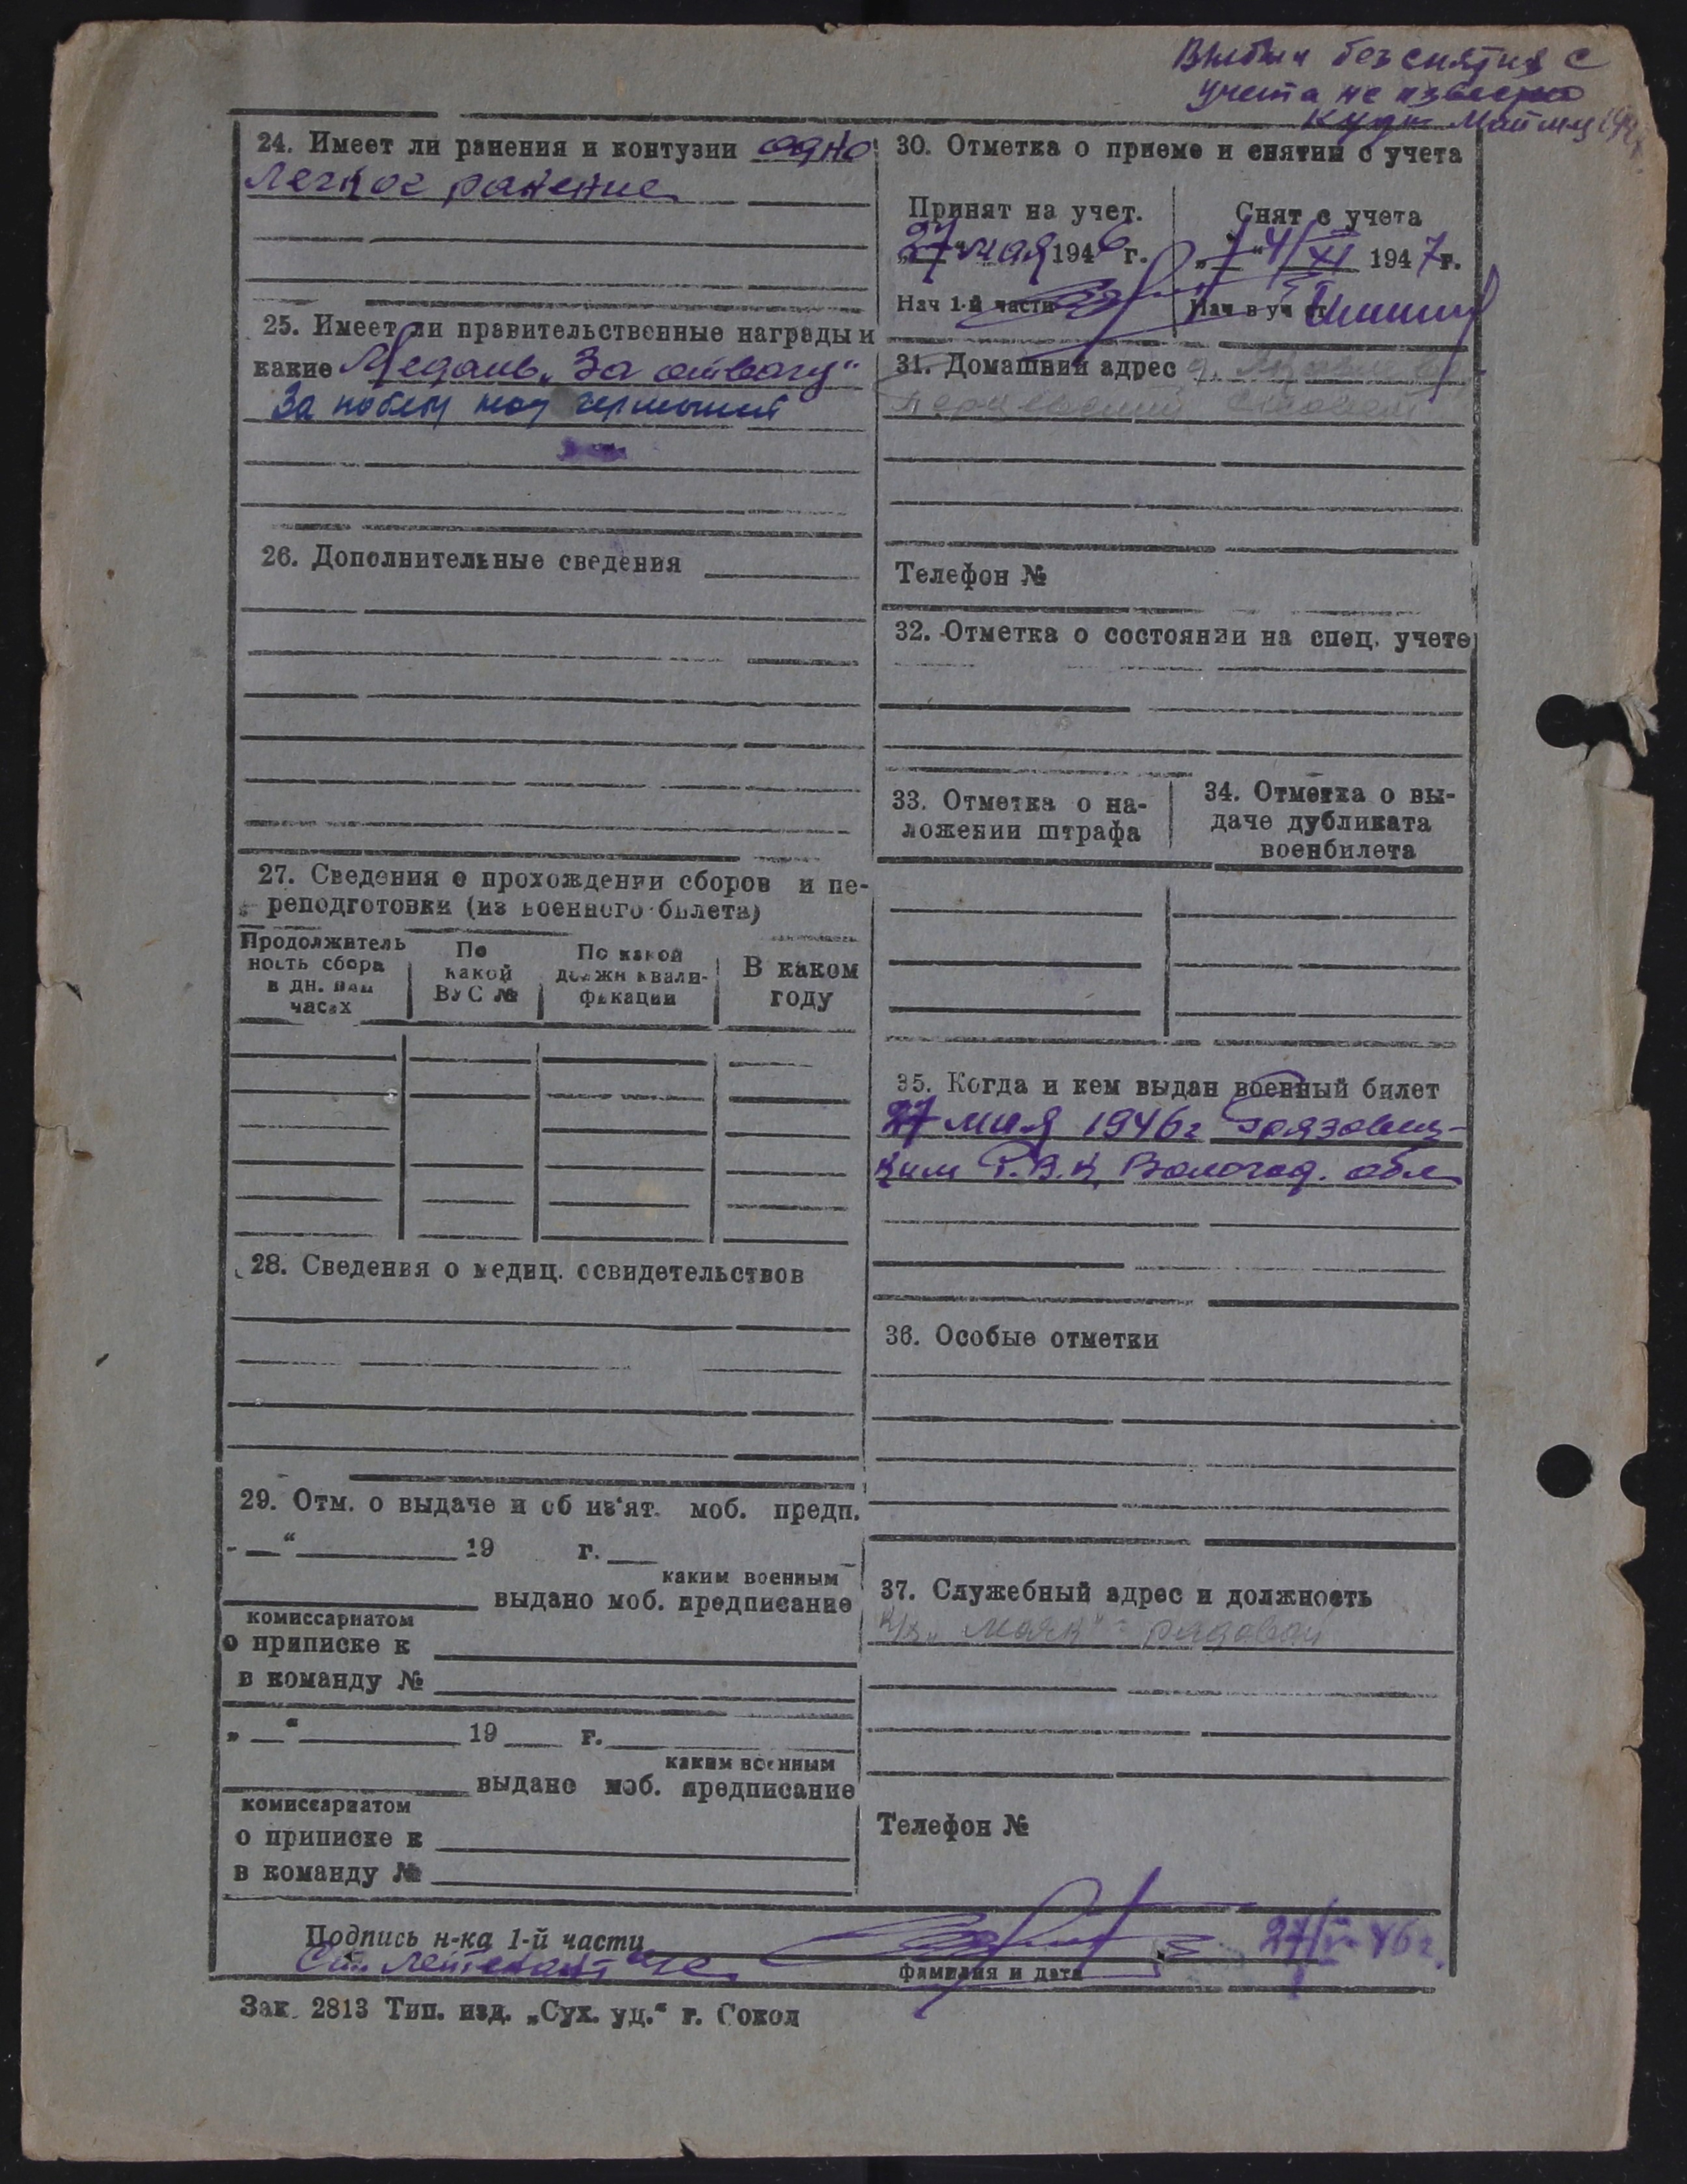 Выбыл без снятия с
учета не известно
куда
24. Имеет ли ранения и контузии одно
легкое ранение
25. Имеет ли правительственные награды и
какие Медаль „За отвагу“
За победу над германией
26. Дополнительные сведения
27. Сведения о прохождении сборов и пе-
реподготовки (из военного билета)
Продолжитель
ность сбора
в дн. или
часах
По
какой
ВУС №
По какой
должн квали-
фикации
В каком
году
28. Сведения о медиц. освидетельствов
29. Отм. о выдаче и об из'ят. моб. предп.
„ “ 19 г.
каким военным
выдано моб. предписание
комиссариатом
о приписке к
в команду №
„ “ 19 г.
каким военным
выдано моб. предписание
комиссариатом
о приписке к
в команду №
30. Отметка о приеме и снятии с учета
Принят на учет.
„27“ мая 1946 г.
Нач 1-й части
Снят с учета
XI 1947 г.
Нач в уч ст
31. Домашний адрес д.
сельсовет
Телефон №
32. Отметка о состоянии на спец. учете
33. Отметка о на-
ложении штрафа
34. Отметка о вы-
даче дубликата
военбилета
35. Когда и кем выдан военный билет
27 мая 1946 г Грязовец-
ким Р.В.К, Вологод. обл
36. Особые отметки
37. Служебный адрес и должность
к/з „Маяк“ - рядовой
Телефон №
Подпись н-ка 1-й части
Ст. лейтенант
фамилия и дата
27/V-46 г.
Зак. 2813 Тип. изд. „Сух. уц.“ г. Сокол